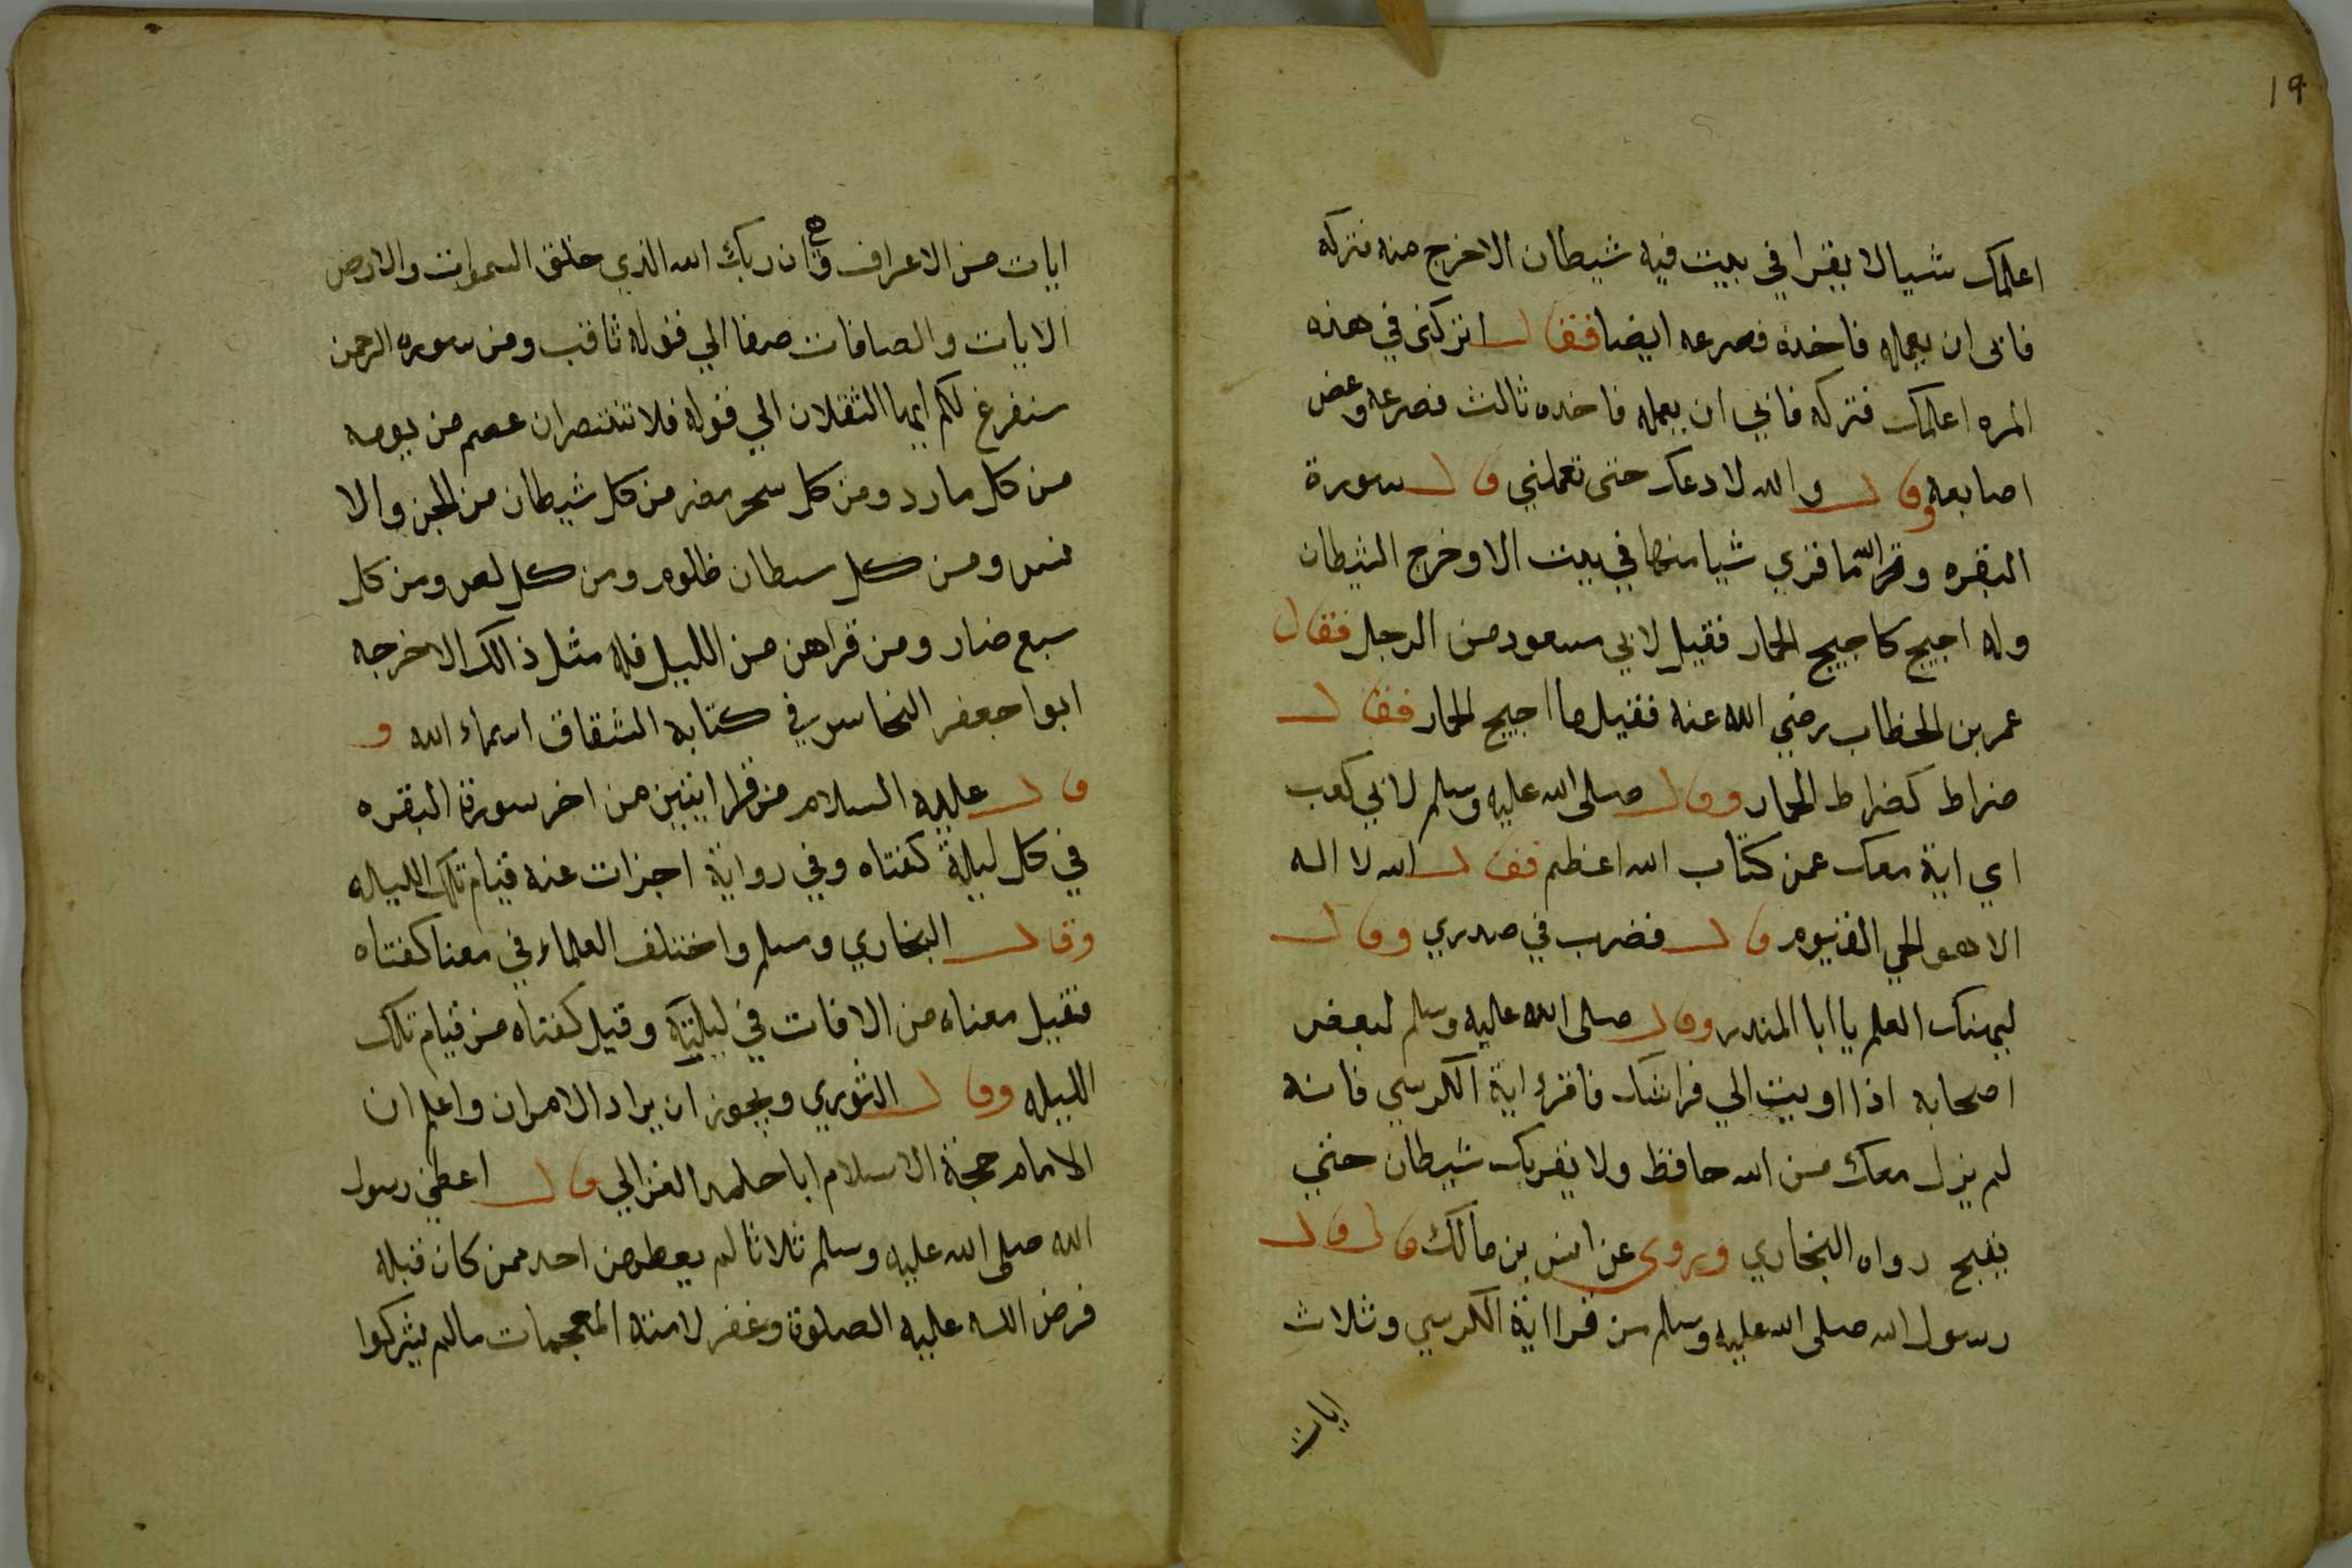 19
اعلمك شيالا يقرا في بيت فيه شيطان الاخرج منه فتركه
فابى ان يعمله فاخذه فصرعه ايضا فقال اتركنى في هذه
المره اعلمك فتركه فابي ان يعمله فاخده ثالث فصرعه وعض
اصابعه وقال والله لادعك حتى تعملني قال سورة
البقره وقرا ما قرى شيا منها في بيت الا وخرج الشيطان
وله اجيج كاجيج الحمار فقيل لابي مسعود من الرجل فقال
عمر بن الخطاب رضي الله عنه فقيل ما اجيج الحمار فقال
ضراط كضراط الحمار وقال صلى الله عليه وسلم لابي كعب
اي اية معك عمن كتاب الله اعظم فقال الله لا اله
الا هو الحي القيوم قال فضرب في صدري وقال
ليهنك العلم يا ابا المندر وقال صلى الله عليه وسلم لبعض
اصحابه اذا اويت الي فراشك فاقرء اية الكرسي فانه
لم يزل معك من الله حافظ ولا يقربك شيطان حتي
يصبح رواه البخاري ويروى عن انس بن مالك قال قال
رسول الله صلى الله عليه وسلم من قرا اية الكرسي وثلاث
ايات
ايات من الاعراف وهي ان ربك الله الذي خلق السموات والارض
الايات والصافات صفا الي قوله ثاقب ومن سوره الرحمن
سنفرغ لكم ايها الثقلان الي قوله فلا تنتصران عصم من يومه
من كل مارد ومن كل سحر مضر من كل شيطان من الجن والا
نس ومن كل سطان ظلوم ومن كل لص ومن كل
سبع ضار ومن قراهن من الليل فله مثل ذالك الاخرجه
ابوا جعفر النحاس في كتابه الشقاق اسماء الله و
قال عليه السلام من قرا ايتين من اخر سورة البقره
في كل ليلة كفتاه وفي رواية اجزات عنه قيام تلك الليله
وقال البخاري ومسلم واختلف العلماء في معنا كفتاه
فقيل معناه من الافات في ليلته وقيل كفتاه من قيام تلك
الليله وقال الثوري ويجوز ان يراد الامران واعلم ان
الامام حجة الاسلام ابا حامد الغزالي قال اعطي رسول
الله صلى الله عليه وسلم ثلاثا لم يعط من احد ممن كان قبله
فرض الله عليه الصلوة وغفر لامته المعجمات مالم يشركوا